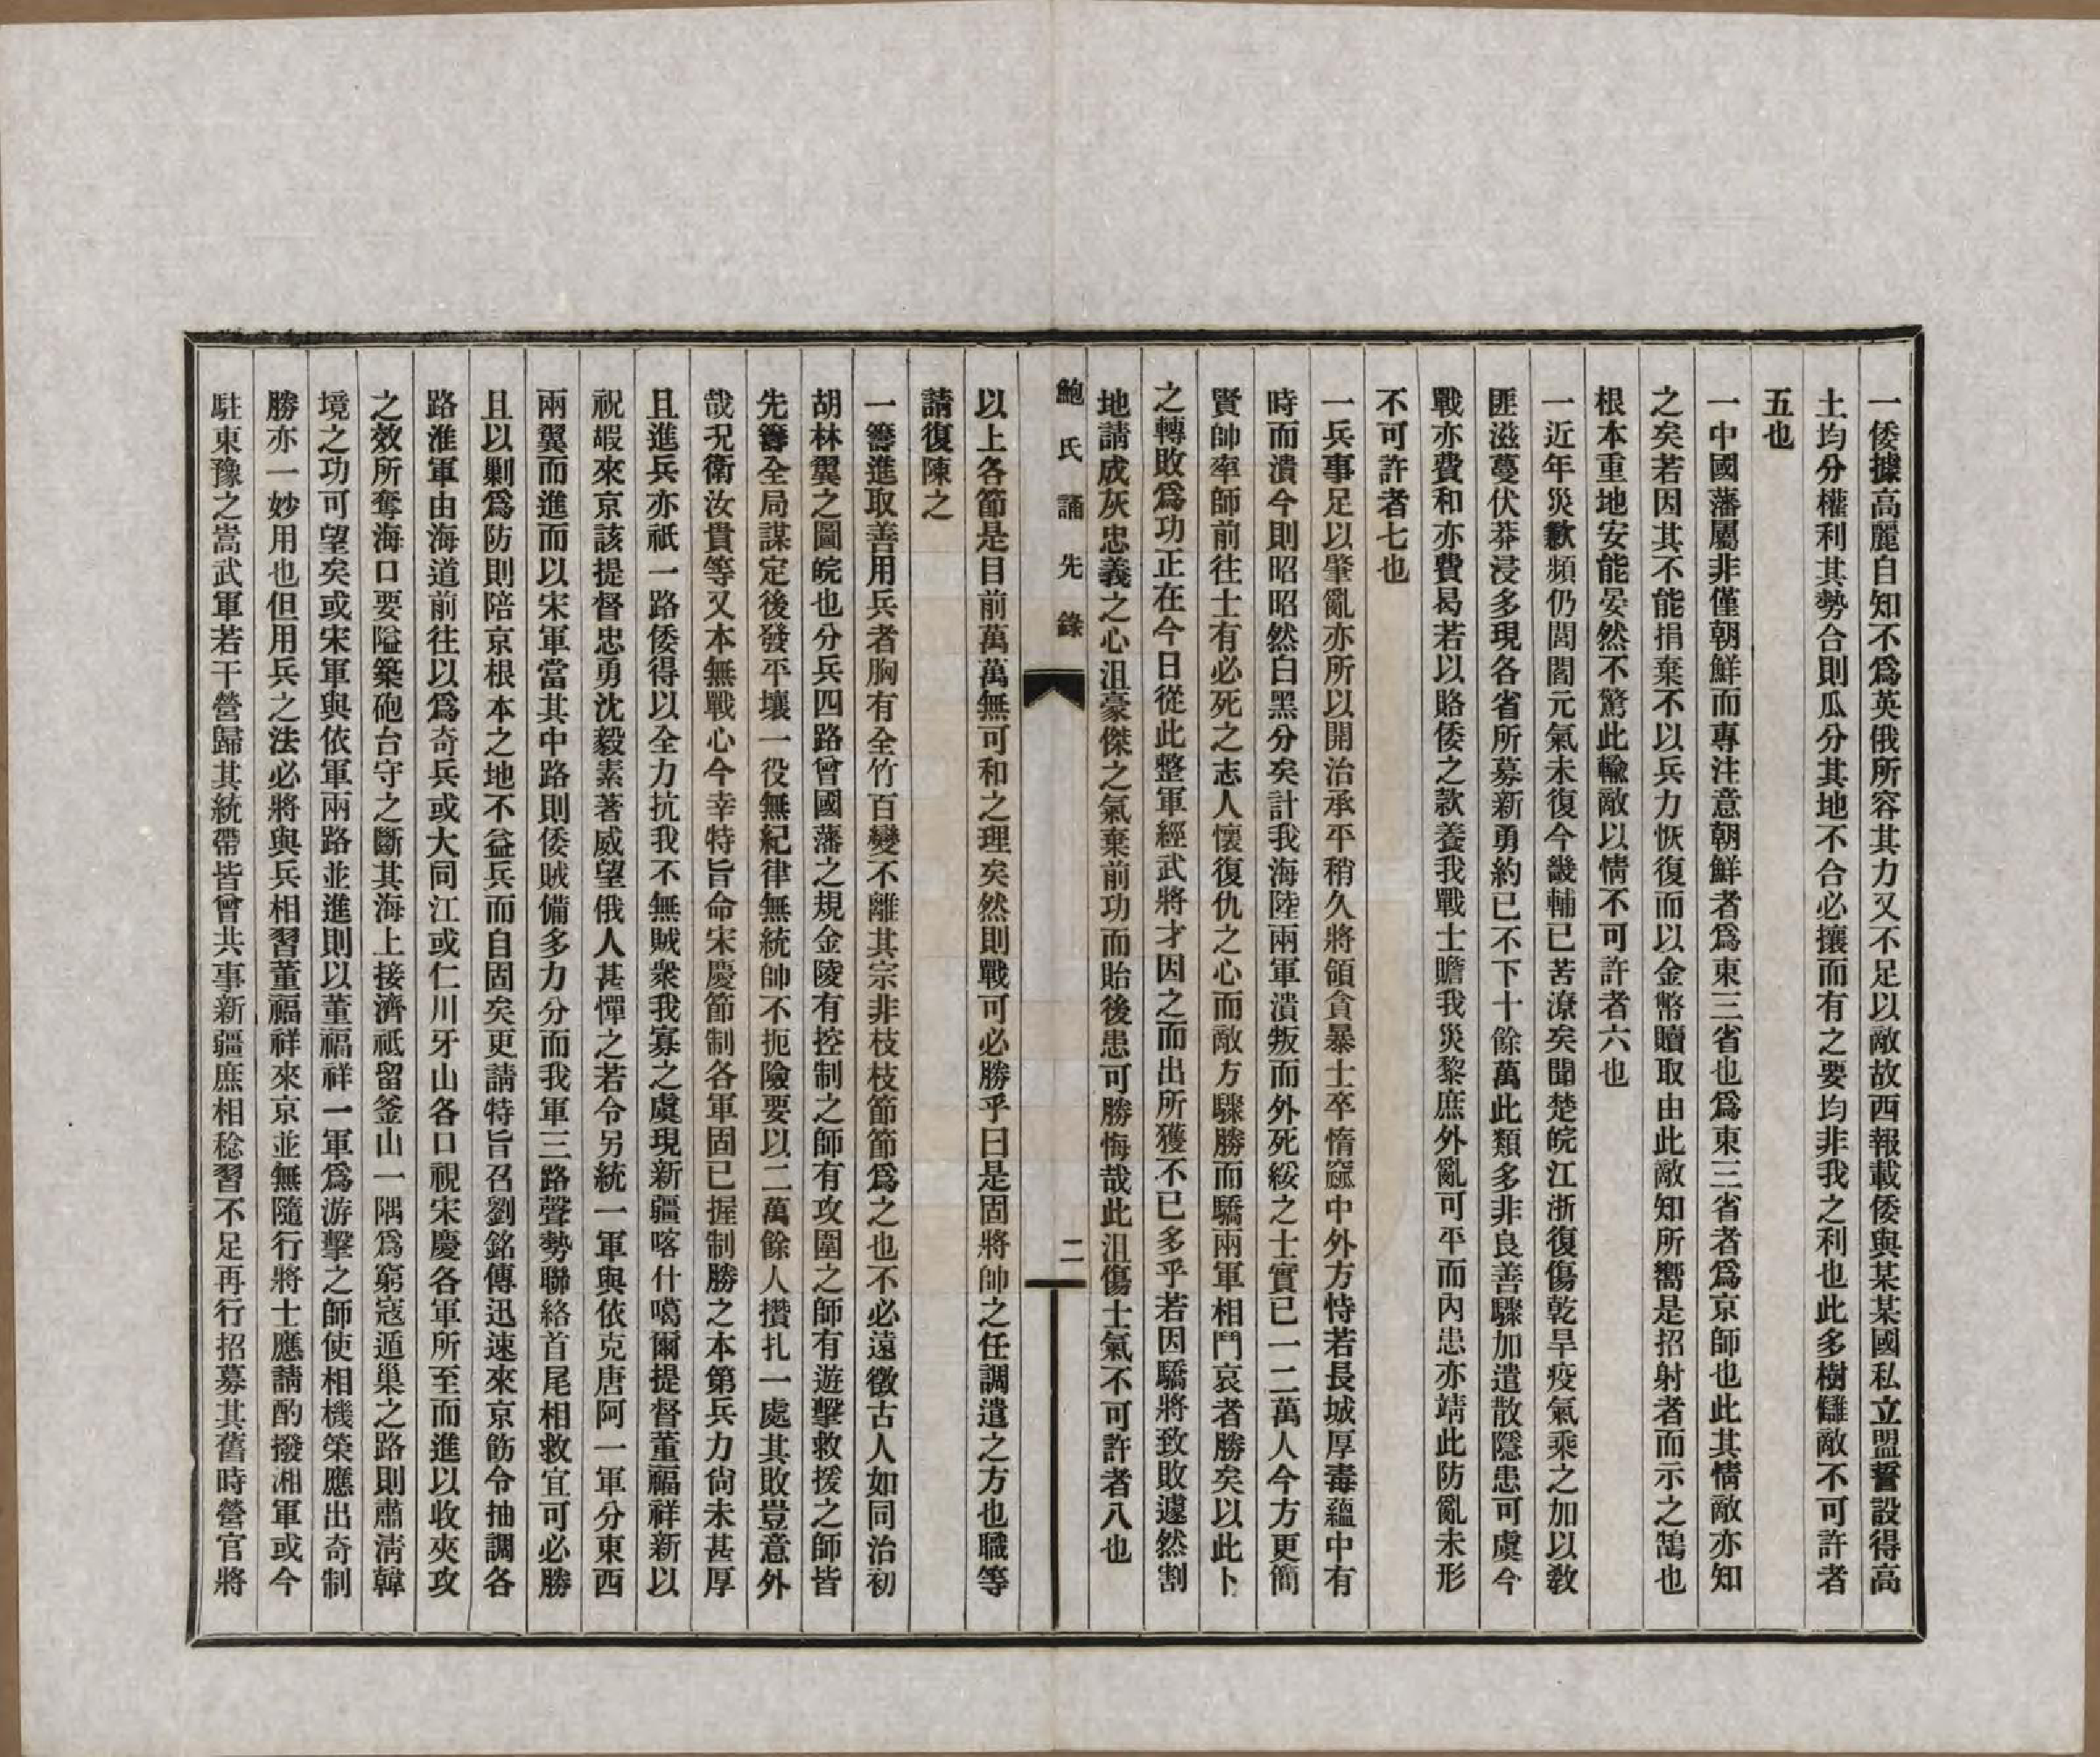 一倭據高麗自知不爲英俄所容其力又不足以敵故西報載倭與某某國私立盟誓設得高
土均分權利其勢合則瓜分其地不合必攘而有之要均非我之利也此多樹讎敵不可許者
五也
一中國藩屬非僅朝鮮而專注意朝鮮者爲東三省也爲東三省者爲京師也此其情敵亦知
之矣若因其不能捐棄不以兵力恢復而以金幣贖取由此敵知所嚮是招射者而示之鵠也
根本重地安能晏然不驚此輸敵以情不可許者六也
一近年災歉頻仍閭閻元氣未復今畿輔已苦潦矣聞楚皖江浙復傷乾旱疫氣乘之加以教
匪滋蔓伏莽浸多現各省所募新勇約已不下十餘萬此類多非良善驟加遣散隱患可虞今
戰亦費和亦費曷若以賂倭之款養我戰士贍我災黎庶外亂可平而內患亦靖此防亂未形
不可許者七也
一兵事足以肇亂亦所以開治承平稍久將領貪暴士卒惰窳中外方恃若長城厚毒蘊中有
時而潰今則昭昭然白黑分矣計我海陸兩軍潰叛而外死綏之士實已一二萬人今方更簡
賢帥率師前往士有必死之志人懷復仇之心而敵方驟勝而驕兩軍相鬥哀者勝矣以此卜
之轉敗爲功正在今日從此整軍經武將才因之而出所獲不已多乎若因驕將致敗遽然割
地請成灰忠義之心沮豪傑之氣棄前功而貽後患可勝悔哉此沮傷士氣不可許者八也
鮑氏誦先錄
二
以上各節是目前萬萬無可和之理矣然則戰可必勝乎曰是固將帥之任調遣之方也職等
請復陳之
一籌進取善用兵者胸有全竹百變不離其宗非枝枝節節爲之也不必遠徵古人如同治初
胡林翼之圖皖也分兵四路曾國藩之規金陵有控制之師有攻圍之師有遊擊救援之師皆
先籌全局謀定後發平壤一役無紀律無統帥不扼險要以二萬餘人攢扎一處其敗豈意外
哉況衛汝貴等又本無戰心今幸特旨命宋慶節制各軍固已握制勝之本第兵力尙未甚厚
且進兵亦祇一路倭得以全力抗我不無賊衆我寡之虞現新疆喀什噶爾提督董福祥新以
祝嘏來京該提督忠勇沈毅素著威望俄人甚憚之若令另統一軍與依克唐阿一軍分東西
兩翼而進而以宋軍當其中路則倭賊備多力分而我軍三路聲勢聯絡首尾相救宜可必勝
且以剿爲防則陪京根本之地不益兵而自固矣更請特旨召劉銘傳迅速來京飭令抽調各
路淮軍由海道前往以爲奇兵或大同江或仁川牙山各口視宋慶各軍所至而進以收夾攻
之效所奪海口要隘築砲台守之斷其海上接濟祇留釜山一隅爲窮寇遁巢之路則肅淸韓
境之功可望矣或宋軍與依軍兩路並進則以董福祥一軍爲游擊之師使相機策應出奇制
勝亦一妙用也但用兵之法必將與兵相習董福祥來京並無隨行將士應請酌撥湘軍或今
駐東豫之嵩武軍若干營歸其統帶皆曾共事新疆庶相稔習不足再行招募其舊時營官將